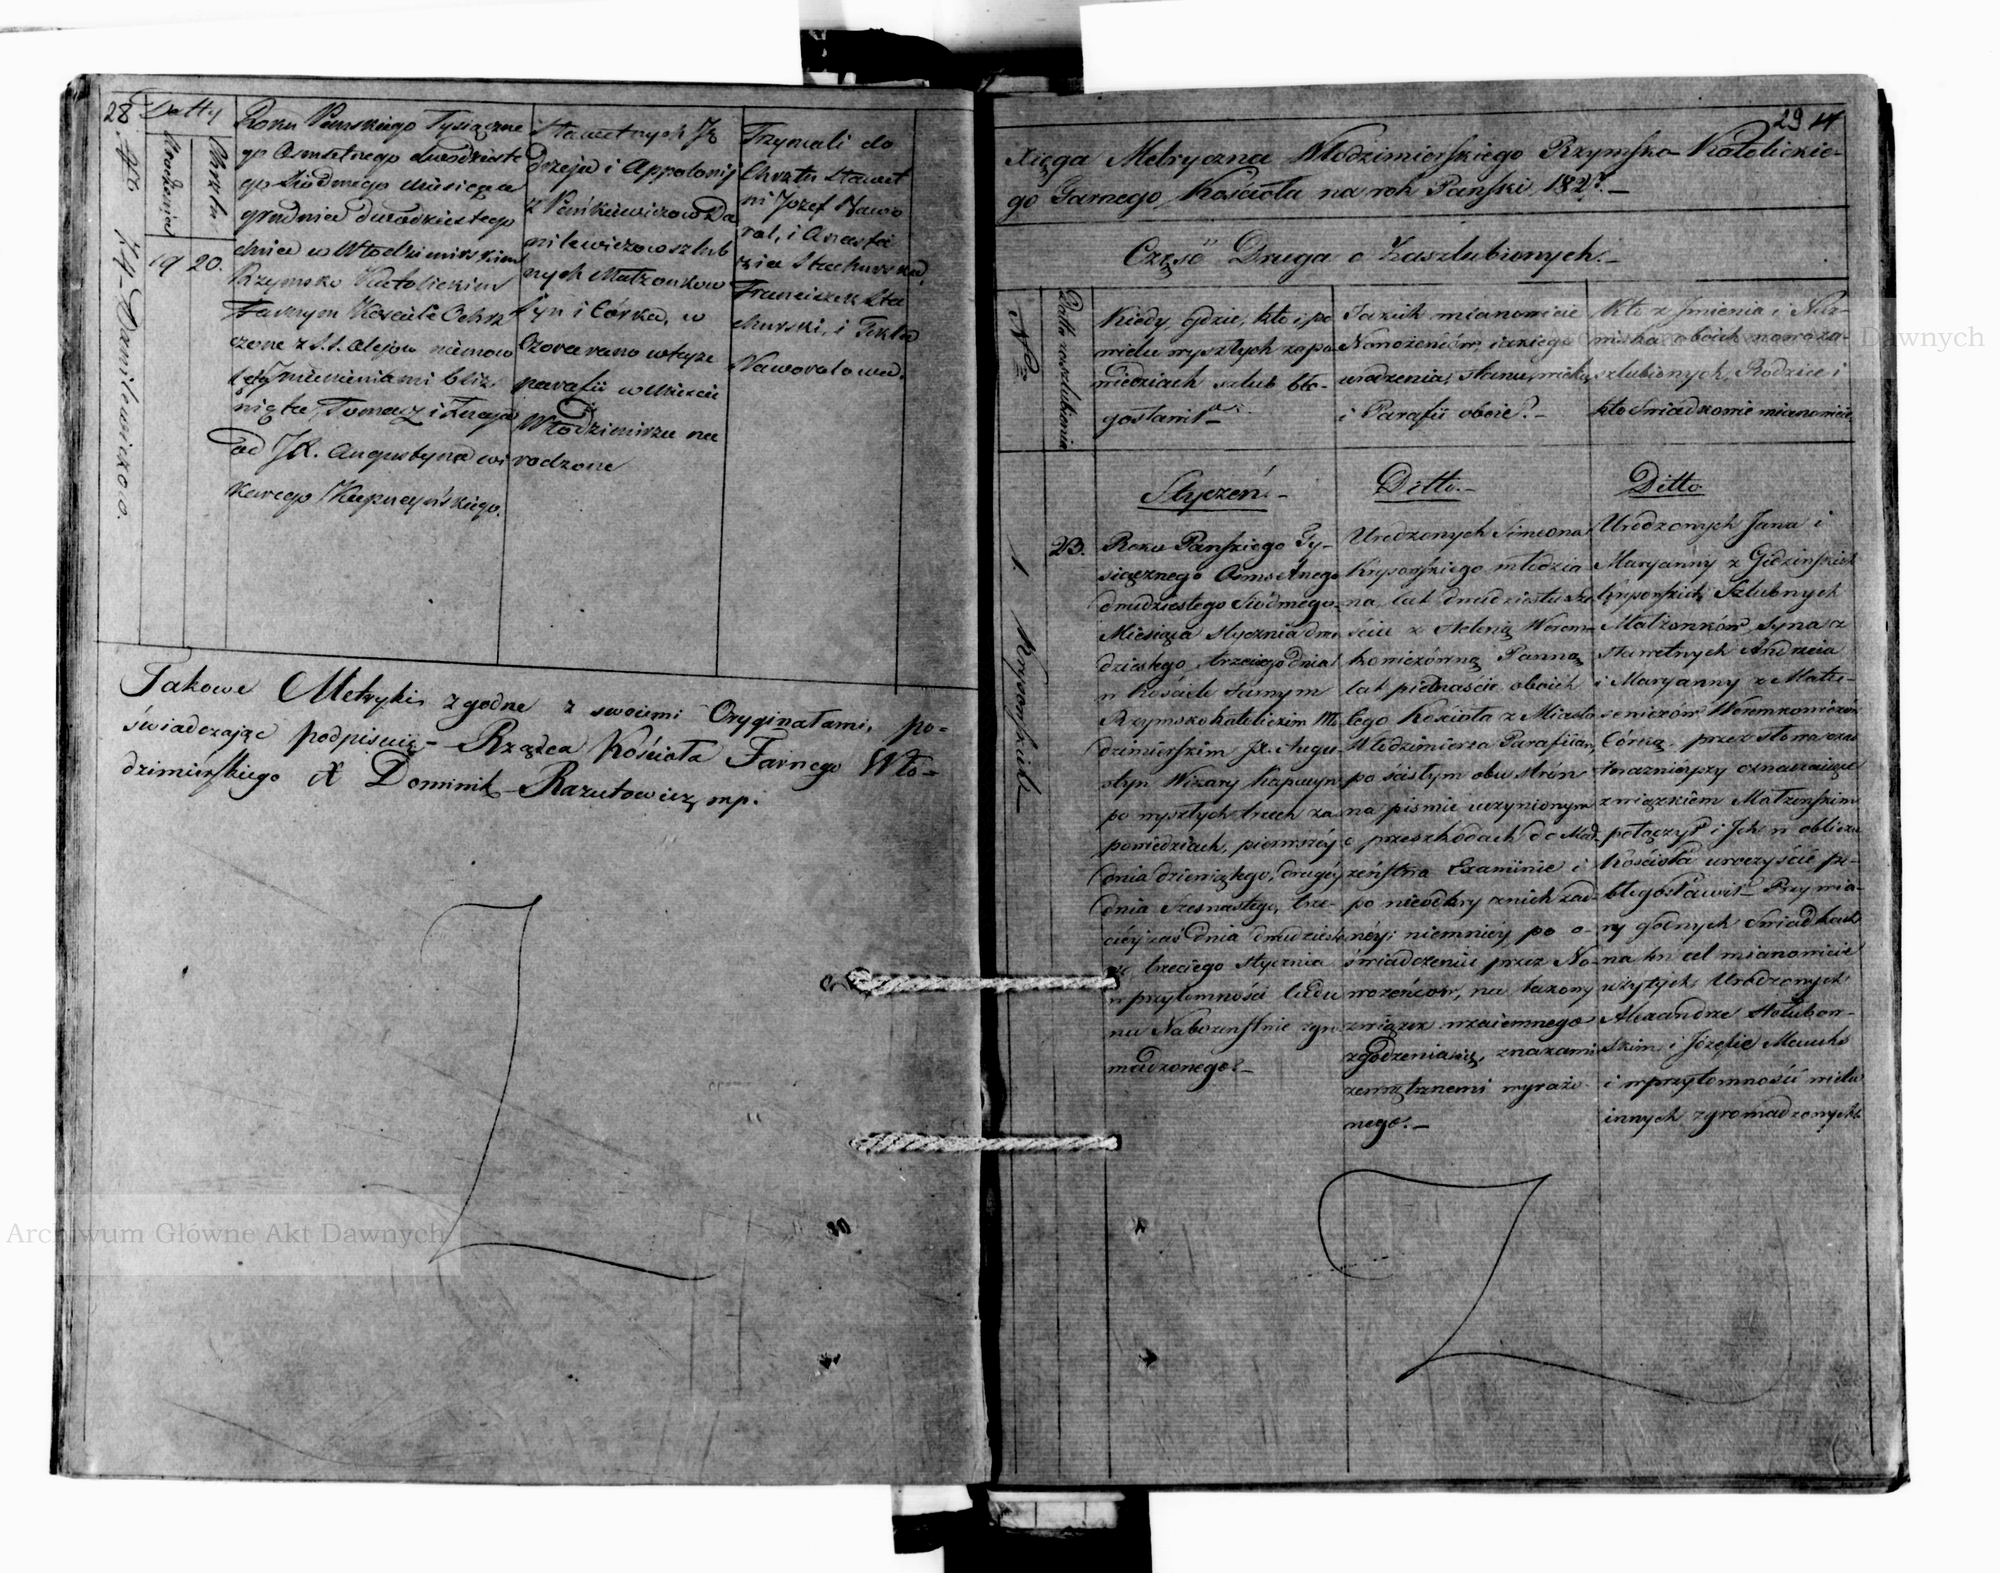 28.
Datty
Urodzenia
Chrztu
19
20.
No 44 Danilewiczowo.
Roku Panskiego Tysiączne
go Osmsetnego dwudzieste
go Siodmego miesiąca
grudnia dwudziestego
dnia w Włodzimirskim
Rzymsko Katolickim
Farnym Kościele Ochrz
czone z S.S. Olejow
imieniami bliz
nięta, Tomasz i
od JX. Augustyna wi
karego Kapucyńskiego.
Sławetnych Ję
drzeja i Appolonij
z Pańkiewiczow Da
nilewiczow szlub
nych Małzonkow
Syn i Córka, w
tutejsze
parafii w mieście
Włodzimirzu na
rodzone
Trzymali do
Chrztu Sławet
ni Jozef Nawo
rol, i Anasta
zia Stachurska
Franciszek Sta
churski, i Tekla
Naworolowa.
Takowe Metryki zgodne z swoiemi Oryginałami, po-
świadczając podpisuię - Rządca Kościoła Farnego Wło-
dzimirskiego X Dominik Razutowicz mp.
29 14
Xięga Metryczna Włodzimierskiego Rzymsko Katolickie-
go Farnego Kościoła na rok Panski 1827. -
Część Druga o Zaszlubionych. -
Nro
Datta zaszlubienia
Kiedy, gdzie, kto i po
wielu wyszłych zapo
wiedziach szlub bło-
gosławił -
Jakich mianowicie
Nowożeńców, iakiego
urodzenia, stanu, wieku,
i Parafii oboie? -
Kto z Imienia i Naz-
wiska oboich nowoza-
szlubionych, Rodzice i
kto Swiadkowie mianowicie.
Styczeń. -
Ditto. -
Ditto
1.
23.
Roku Panskiego Ty-
siącznego Osmsetnego
dwudziestego Siódmego
Miesiąca Stycznia dwu
dziestego trzeciego dnia
w Kościele Farnym
Rzymsko Katolickim Wło
dzimierskim JX. Augu
styn Wikary Kapucyn
po wyszłych trzech za
powiedziach, pierwszéj
dnia dziewiątego, drugéj
dnia Szesnastego, trze-
ciéj zaś dnia dwudzieste
go trzeciego Stycznia
w przytomności ludu
na Nabożenstwie zgro
madzonego. -
Urodzonych Simeona
młodzia
na, lat dwudziestu sze
ściu z Heleną Werem-
kowiczówną Panną
lat pietnaście oboich
tego Kościoła z Miasta
Włodzimierza Parafiian,
po ścisłym obu strón
na piśmie uczynionym
o przeszkodach do Mał-
żeństwa Examinie i
po nieodkryciu ich żad-
néy; niemniéy po o-
świadczeniu przez No-
wożeńców, na takowy
związek wzaiemnego
zgodzenia się, znakami
zewnętrznemi wyrażo-
nego. -
Urodzonych Jana i
Maryanny z Gidzinskich
Szlubnych
Małżonków, Syna z
sławetnych Andrzeia
i Maryanny z Matu-
seniczów Weremkowiczów
Córką - przez słowa czas
teraznieyszy oznaczaiące
związkiem Małżenskim
połączył i Ich w obliczu
Kościoła uroczyście po-
błogosławił - Przy wia-
ry godnych Swiadkach
na ten cel mianowicie
użytych Urodzonych
Alexandrze Hołubow-
skim i Józefie
i w przytomności wielu
innych zgromadzonych.
Archiwum Główne Akt Dawnych
Archiwum Główne Akt Dawnych